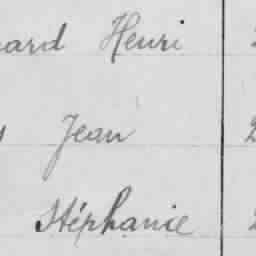 ard Henri
Jean
Stéphanie